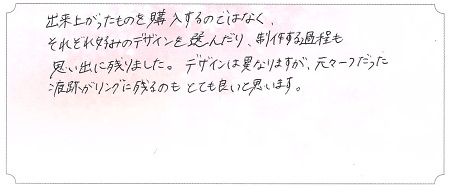 出来上がったものを購入するのではなく、
それぞれ好みのデザインを選んだり、制作する過程も
思い出に残りました。デザインは異なりますが、元々一つだった
痕跡がリングに残るのもとても良いと思います。